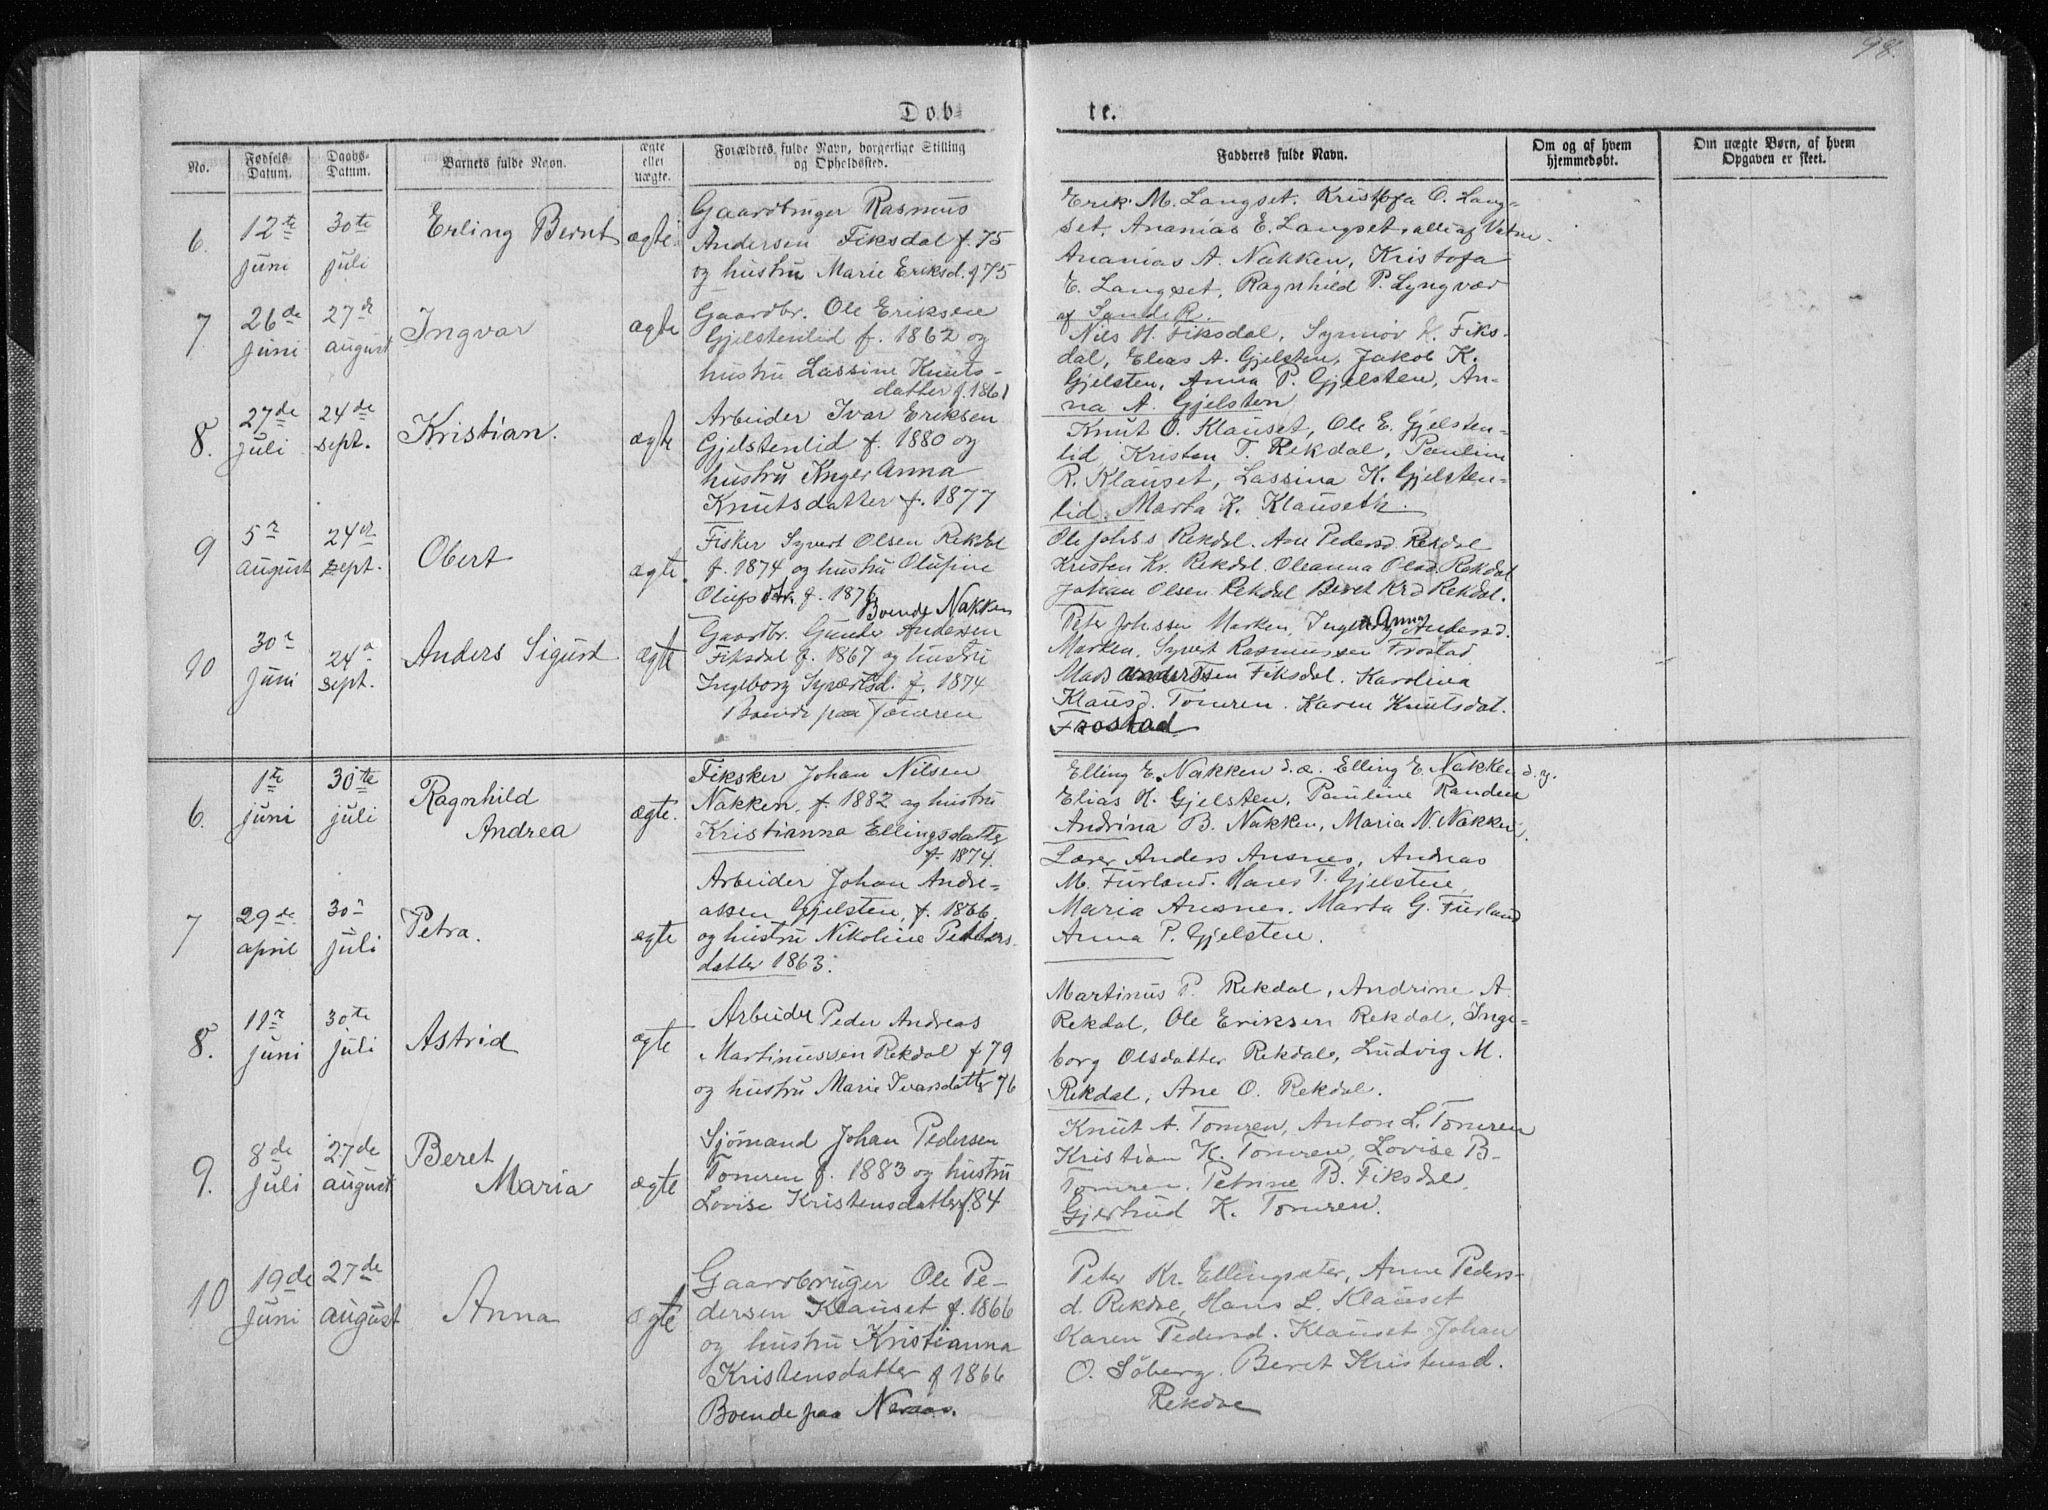 98.
Dob-
te.
No.
Fødsels Datum.
Daabs-Datum.
Barnets fulde Navn.
ægte eller uægte.
Forældres fulde Navn, borgerlige Stilling og Opholdssted.
Fadderes fulde Navn.
Om og af hvem hjemmedøbt.
Om uægte Børn, af hvem Opgaven er skeet.
6.
12te juni
30te juli
Erling Bernt
ægte
Gaardbruger Rasmus
Andersen Fiksdal f. 75
og hustru Marie Eriksd. f 75
Erik M. Langset. Kristofa O. Lang-
set. Ananias E. Langset, alle af Vatne.
Ananias A. Nakken, Kristofa
E. Langset, Ragnhild P. Lyngvær
af Sande R.
7
26de juni
27de august
Ingvar
ægte
Gaardbr. Ole Eriksen
Gjelstenlid f. 1862 og
hustru Lassine Knuts-
datter f. 1861
Nils H. Fiksdal, Synnöv K. Fiks-
dal, Elias A. Gjelsten, Jakob K.
Gjelsten, Anna P. Gjelsten, An-
na A. Gjelsten
8.
27de juli
24de sept.
Kristian.
ægte
Arbeider Ivar Eriksen
Gjelstenlid f. 1880 og
hustru Inger Anna
Knutsdatter f. 1877
Knut O. Klauset, Ole E. Gjelsten-
lid, Kristen T. Rekdal, Pauline
R. Klauset, Lassina K. Gjelsten-
lid. Marta K. Klauseth.
9
5r august
24de sept.
Obert
ægte.
Fisker Syvert Olsen Rekdal
f. 1874 og hustru Olufine
Olufsdtr. f. 1876
Boende Nakken
Ole Johs s Rekdal. Ane Pedersd Rekdal
Kristen Kr. Rekdal. Oleanna Olsd. Rekdal
Johan Olsen Rekdal Beret Krd Rekdal.
10
30r juni
24de sept.
Anders Sigurd
ægte
Gaardbr. Gunder Andersen
Fiksdal f. 1867 og hustru
Ingeborg Syvertsd. f. 1874
Boende paa Tomren
Peter Johssen Marken, Ingeborg Anna Andersd.
Marken. Syvert Rasmussen Frostad
Mads Anderssen Fiksdal. Karolina
Klausd. Tomren. Karen Knutsdat.
Frostad
6.
1te juni
30te juli
Ragnhild
Andrea
ægte.
Fiksker Johan Nilsen
Nakken f. 1882 og hustru
Kristianna Ellingsdatter
f. 1874.
Elling E. Nakken d. æ. Elling E. Nakken d. y.
Elias H. Gjelsten, Pauline Randen
Andrina B. Nakken, Maria N. Nakken.
7
29de april
30r juli
Petra.
ægte
Arbeider Johan Andre-
assen Gjelsten, f. 1866.
og hustru Nikoline Petters-
datter 1863.
Lærer Anders Ansnes, Andreas
M. Furland. Hans T. Gjelsten
Maria Ansnes. Marta G. Furland
Anna P. Gjelsten.
8.
11r juni
30te juli
Astrid
ægte
Arbeider Peder Andreas
Martinussen Rekdal f 79
og hustru Marie Ivarsdatter 76
Martinus P. Rekdal, Andrine A.
Rekdal, Ole Eriksen Rekdal, Inge-
borg Olsdatter Rekdal, Ludvig M.
Rekdal, Ane O. Rekdal.
9.
8de juli
27de august
Beret
Maria
ægte
Sjömand Johan Pedersen
Tomren f. 1883 og hustru
Lovise Kristensdatter f. 84
Knut A. Tomren, Anton L. Tomren
Kristian K. Tomren, Lovise B-
Tomren. Petrine B. Fiksdal,
Gjertrud K. Tomren.
10
19de juni
27de august
Anna
ægte
Gaardbruger Ole Pe-
dersen Klauset f. 1866
og hustru Kristianna
Kristensdatter f 1866
Boende paa Neraas.
Peter Kr. Ellingsæter, Anne Peders-
d. Rekdal, Hans L. Klauset
Karen Pedersd. Klauset Johan
O. Söberg. Beret Kristensd.
Rekdal